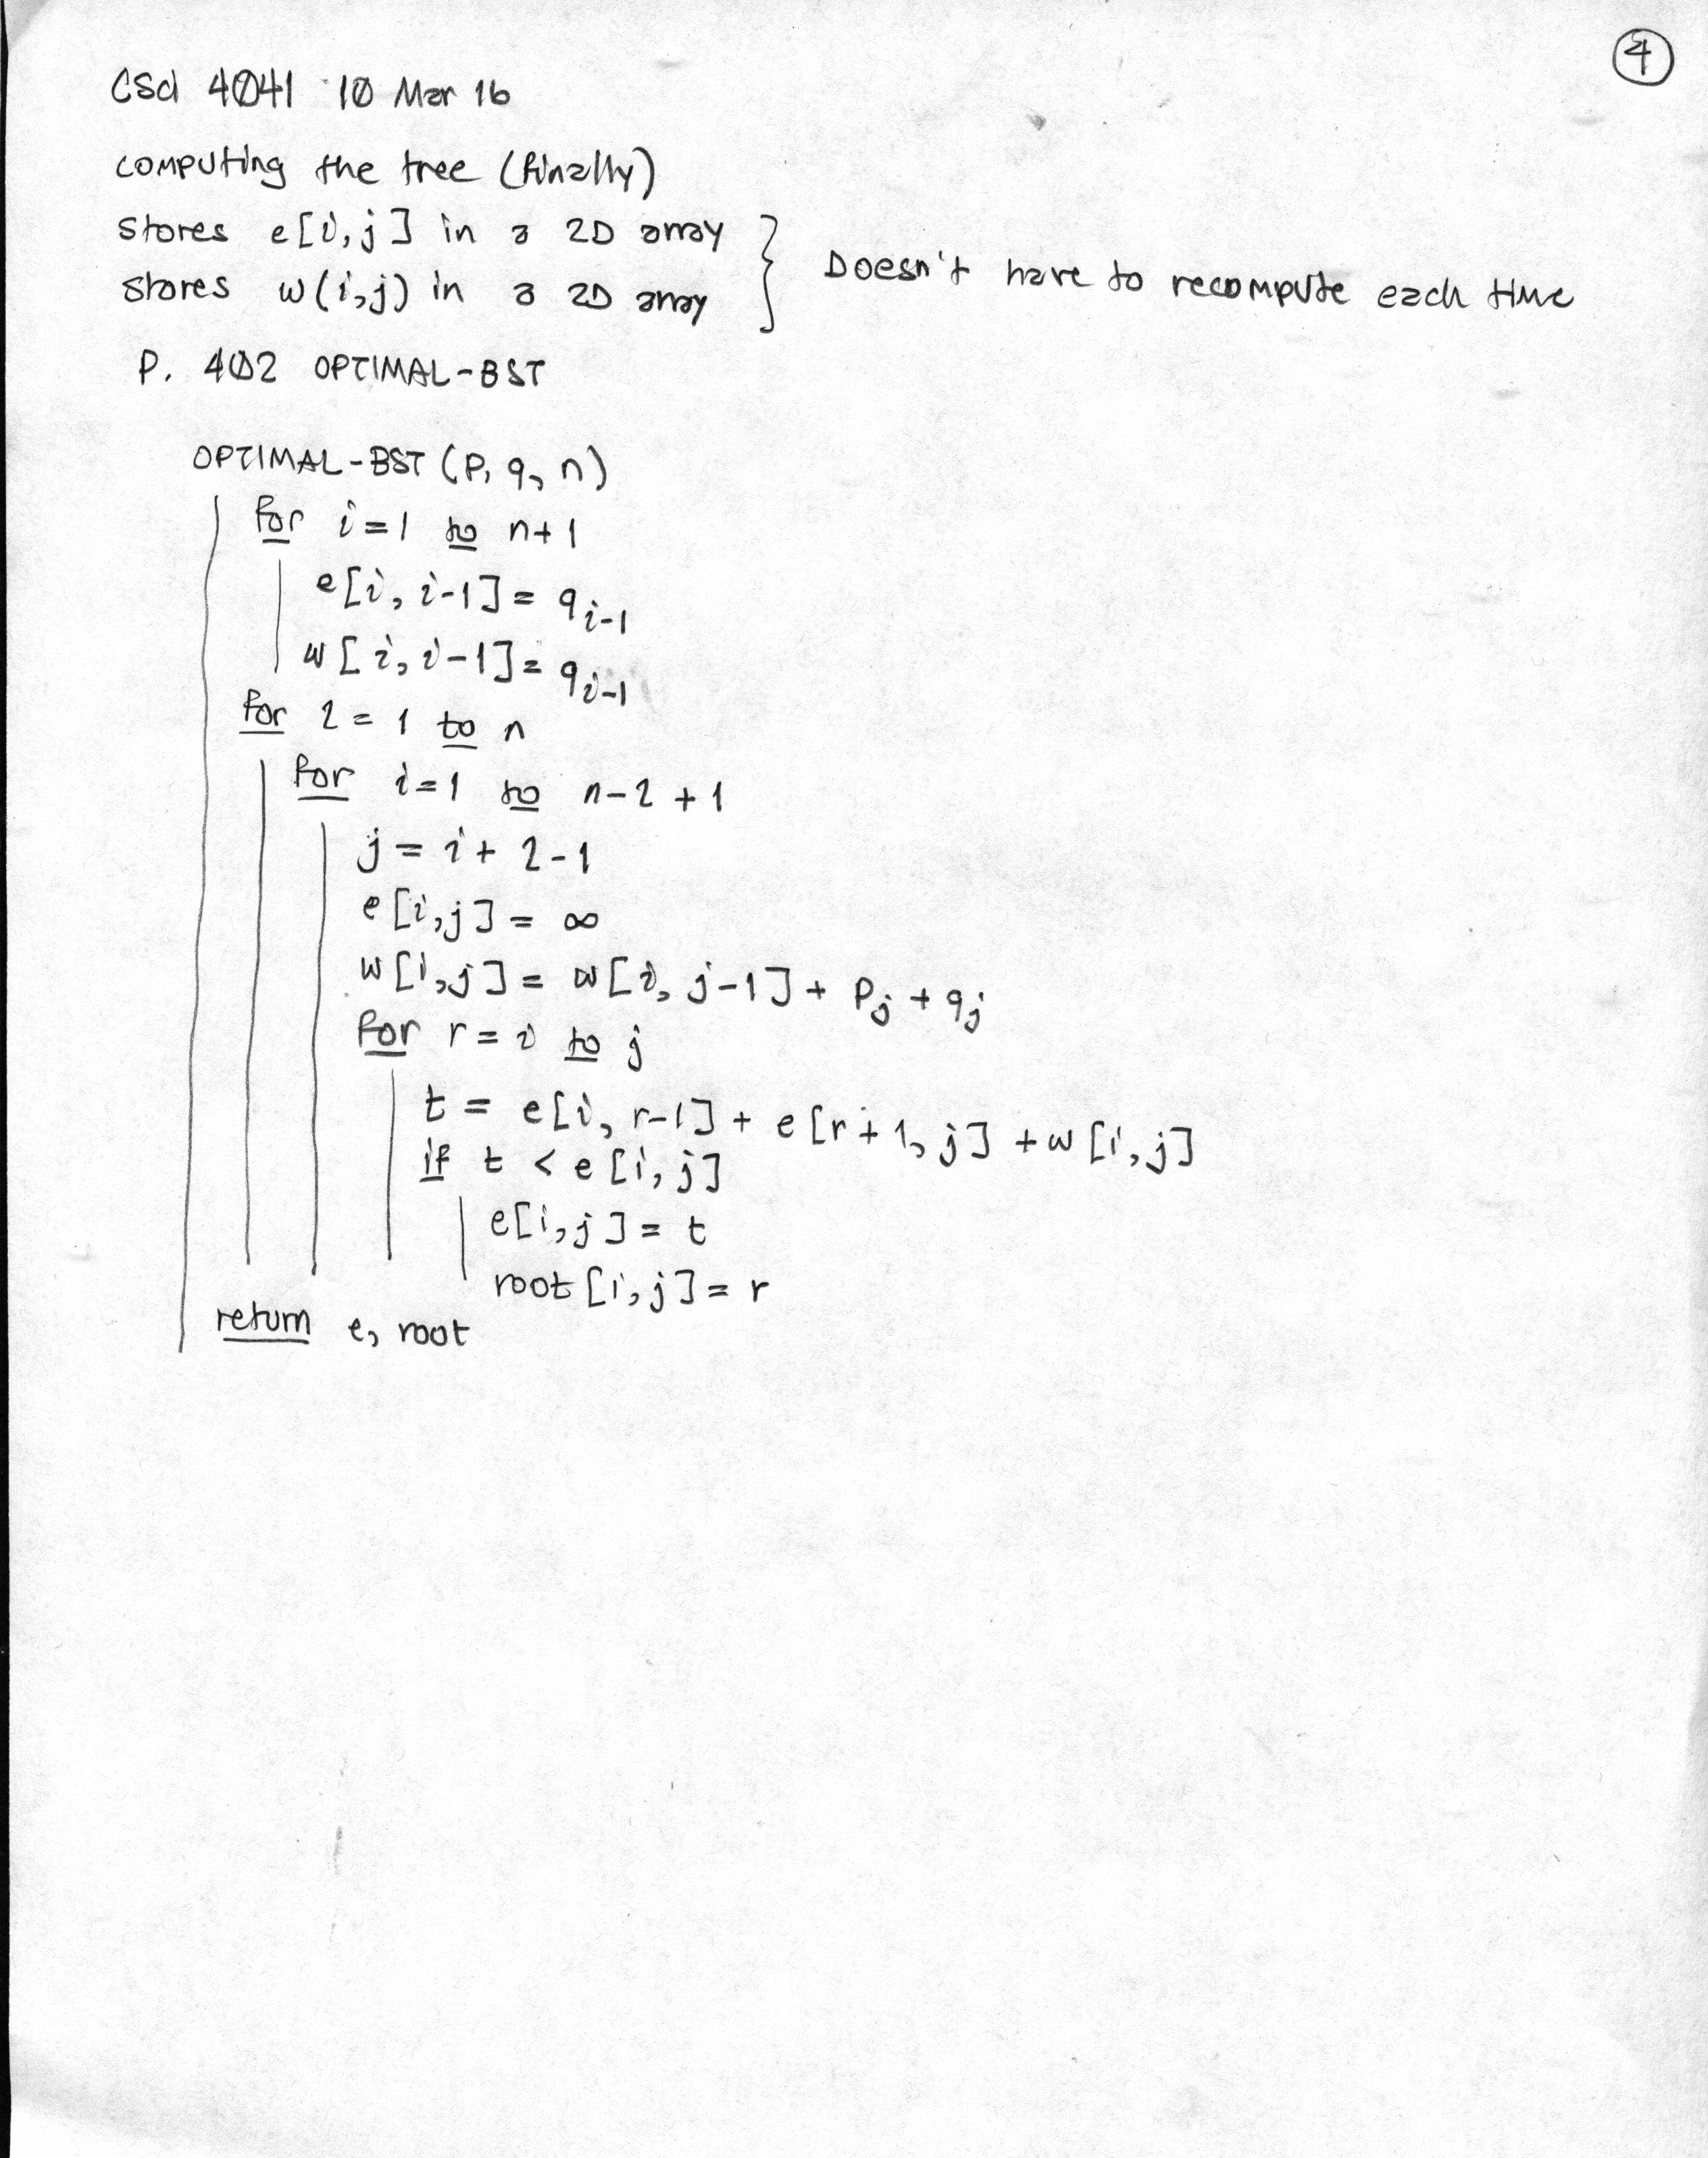 4
CSci 4041 10 Mar 16
computing the tree (finally)
stores e[i,j] in a 2D array
stores w(i,j) in a 2D array
Doesn't have to recompute each time
P. 402 OPTIMAL-BST
OPTIMAL-BST (P, q, n)
for i=1 to n+1
e[i, i-1] = q i-1
w[i, i-1] = q i-1
for l = 1 to n
for i=1 to n-l+1
j = i+l-1
e[i,j] = ∞
w[i,j] = w[i, j-1] + Pj + qj
for r = i to j
t = e[i, r-1] + e[r+1, j] + w[i,j]
if t < e[i,j]
e[i,j] = t
root[i,j] = r
return e, root